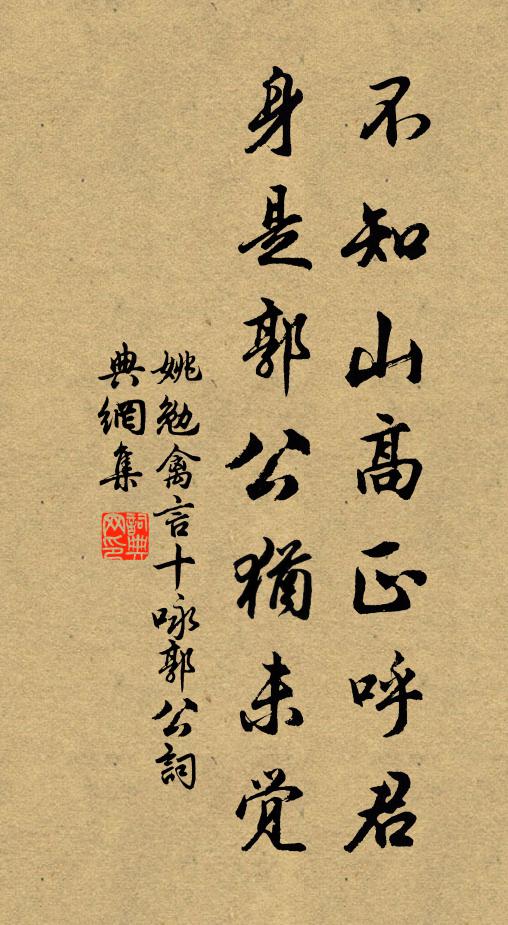 不知山高正呼君
身是郭公猶未覺
姚勉禽言十咏郭公詞
典網集
詞典
网印